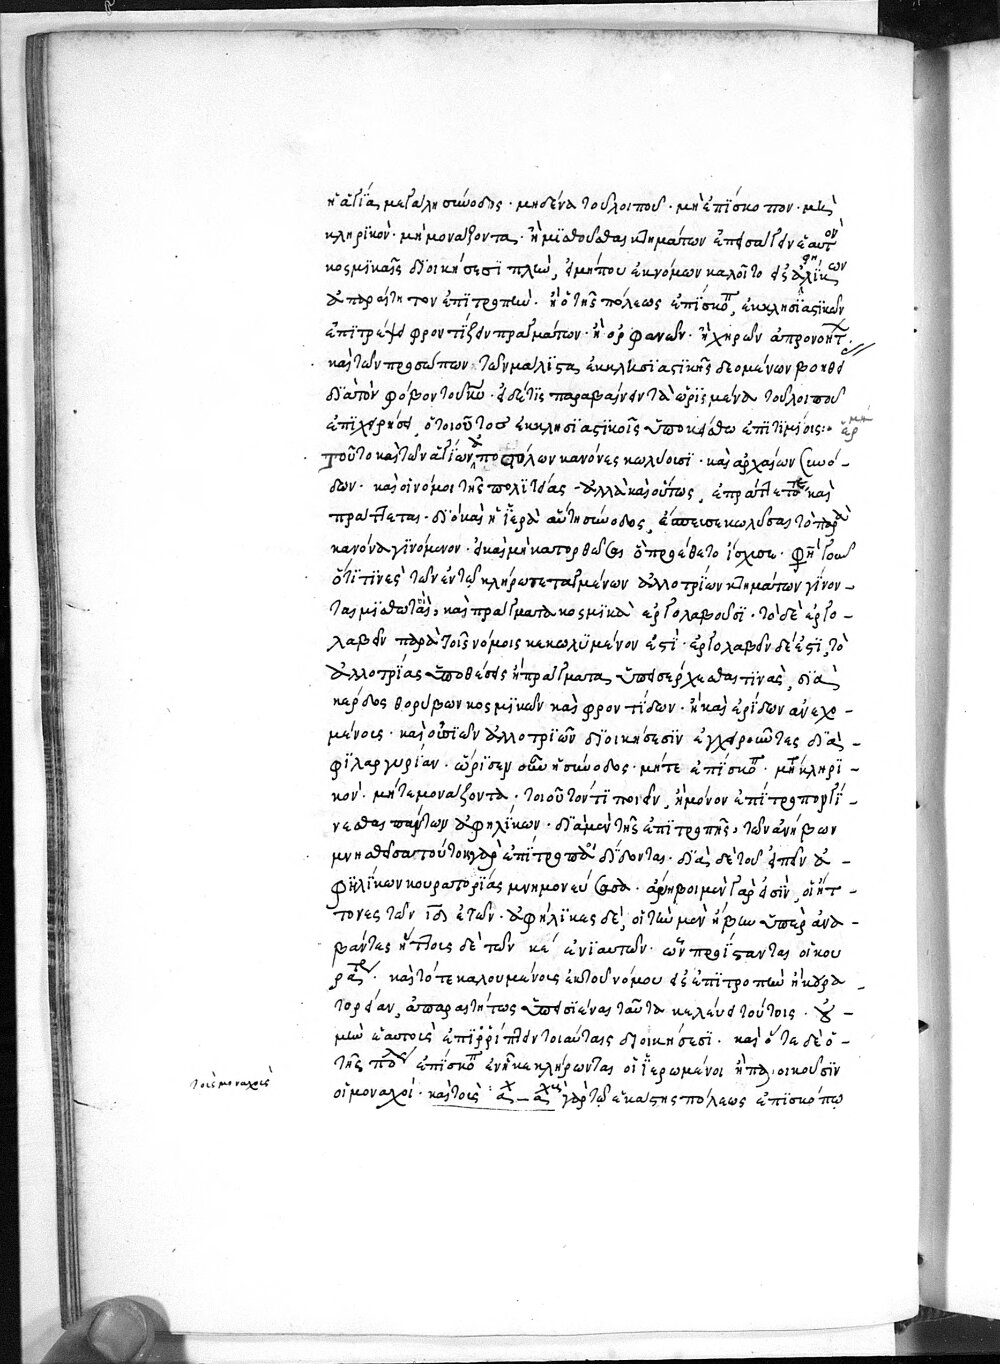 ἡ ἁγία μεγάλη σύνοδος· μηδένα τοῦ λοιποῦ· μὴ ἐπίσκοπον· μὴ
κληρικὸν· μὴ μονάζοντα· ἢ μισθοῦσθαι κτημάτων ἐπεισάγειν ἑαυτὸν
κοσμικαῖς διοικήσεσι πλὴν, εἰ μήπου ἐκ νόμων καλοῖτο εἰς ἀφηλίκων
ἀπαραίτητον ἐπιτροπὴν· ἢ ὁ τῆς πόλεως ἐπίσκοπ, ἐκκλησιαστικῶν
ἐπιτρέψει φροντίζειν πραγμάτων· ἢ ὀρφανῶν· ἢ χηρῶν ἀπρονοήτ
καὶ τῶν προσώπων· τῶν μάλιστα ἐκκλησιαστικῆς δεομένων βοηθεί
διὰ τὸν φόβον τοῦ κυ· εἰ δέ τις παραβαίνειν τὰ ὡρισμένα τοῦ λοιποῦ
ἐπιχειρήσει, ὁ τοιοῦτος ἐκκλησιαστικοῖς ὑποκείσθω ἐπιτιμίοις:·
τοῦτο καὶ τῶν ἁγίων ἀποστόλων κανόνες κωλύουσι· καὶ ἀρχαίων συνό-
δων· καὶ οἱ νόμοι τῆς πολιτείας· ἀλλὰ καὶ οὕτως, ἐπράττετο καὶ
πράττεται· διὸ καὶ ἡ ἱερὰ αὕτη σύνοδος, ἐπεισεκωλύσαι τὸ παρὰ
κανόνα γινόμενον· εἰ καὶ μὴ κατορθῶσαι ὃ προέθετο ἴσχυσε· φησὶ γοῦν
ὅτι τινὲς τῶν ἐν τῷ κλήρῳ τεταγμένων ἀλλοτρίων κτημάτων γίνον-
ται μισθωταὶ, καὶ πράγματα κοσμικὰ ἐργολαβοῦσι· τὸ δὲ ἐργο-
λαβεῖν παρὰ τοῖς νόμοις κεκωλυμένον ἐστὶ· ἐργολαβεῖν δέ ἐστι, τὸ
ἀλλοτρίας ὑποθέσεις ἢ πράγματα ὑπεισέρχεσθαι τινὰς, διὰ
κέρδος θορύβων κοσμικῶν καὶ φροντίδων· ἢ καὶ ἐρίδων ἀνεχο-
μένοις· καὶ οὕτων ἀλλοτριῶν διοικήσεσιν ἐγχειροῦντες διὰ-
φιλαργυρίαν· ὥρισεν οὖν ἡ σύνοδος· μήτε ἐπίσκοπ· μὴ κληρι-
κὸν· μήτε μονάζοντα· τοιοῦτόν τι ποιεῖν, ἢ μόνον ἐπίτροπον γί-
νεσθαι πάντων ἀφηλίκων· διὰ μὲν τῆς ἐπιτροπῆς, τῶν ἀνήβων
μνησθεῖσα· τούτοις γὰρ ἐπίτροποι δίδονται· διὰ δὲ τοῦ εἰπεῖν ἀ-
φηλίκων κουρατορίας μνημονεύουσα· ἄνηβοι μὲν γάρ εἰσιν, οἱ ἥτ-
τονες τῶν ιδ ἐτῶν· ἀφήλικες δὲ, οἱ τὴν μὲν ἥβην ὑπερανα-
βάντες ἥττοις δὲ τῶν κε ἐνιαυτῶν· ὧν προίστανται οἱ κου
ράτορ· καὶ τό τε καλουμένοις ἐκ τοῦ νόμου εἰς ἐπιτροπὴν ἢ κουρα-
τορείαν, ἀπαραιτήτως ὑπεισιέναι ταῦτα κελεύει τούτοις· οὐ-
μὴν ἑαυτοῖς ἐπιῤῥίπτειν τοιαύταις διοικήσεσι· καὶ ὅτε δὲ ὁ-
τῆς πόλ ἐπίσκοπ ἐν ᾗ κεκλήρωνται οἱ ἱερωμένοι ἢ παροικοῦσιν
οἱ μοναχοί· καὶ τοῖς γὰρ τῷ ἑκάστης πόλεως ἐπισκόπῳ
τοῖς μοναχοῖς